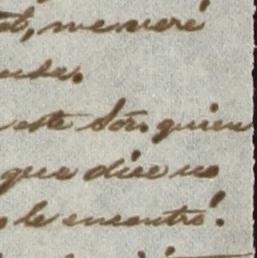 me veré
este Sor. quien
que dice no
le encontró!